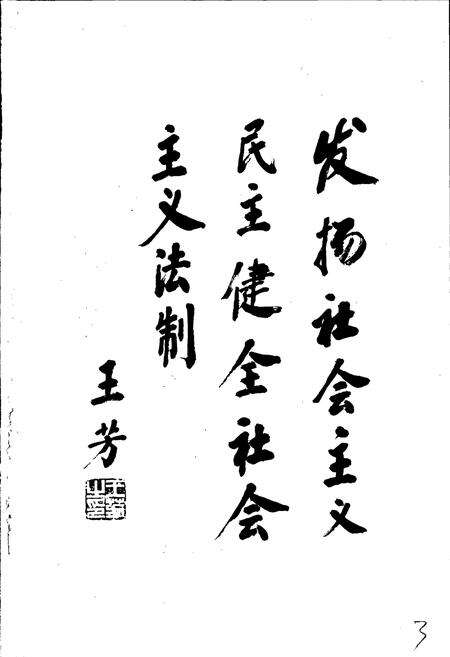 发扬社会主义
民主健全社会
主义法制
王芳
王芳之印
3